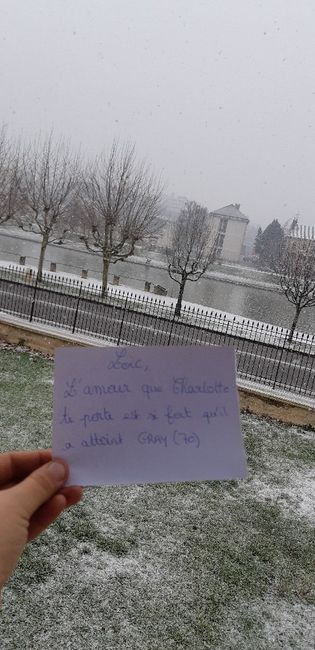 Loïc,
L'amour que Charlotte
te porte est si fort qu'il
a atteint GRAY (70)